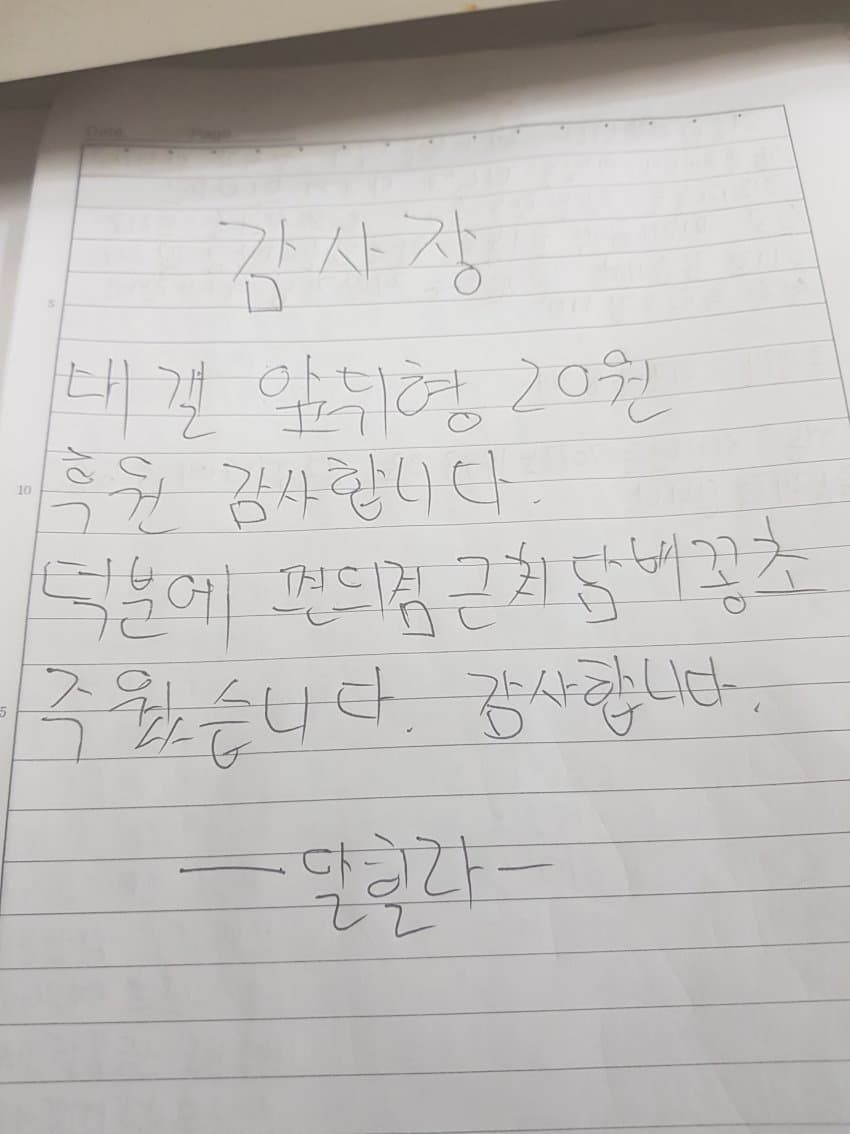 Date Page
감사장
5
대걸 앞뒤형 20원
후원 감사합니다.
10
덕분에 편의점 근처 담배꽁초
주웠습니다. 감사합니다.
5
- 달힐라 -